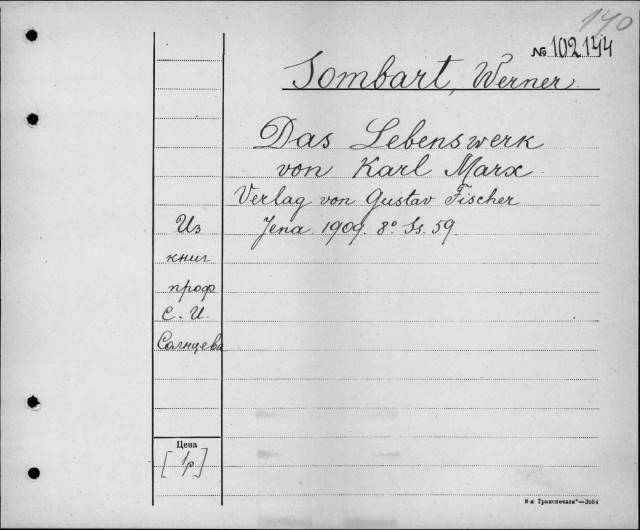 170
№ 102144
Sombart, Werner.
Das Lebenswerk
von Karl Marx
Verlag von Gustav Fischer
Jena. 1909. 8° Ss. 59.
Из
книг
проф
С. И.
Солнцева
Цена
[1р]
8-я Транспечать"—3864